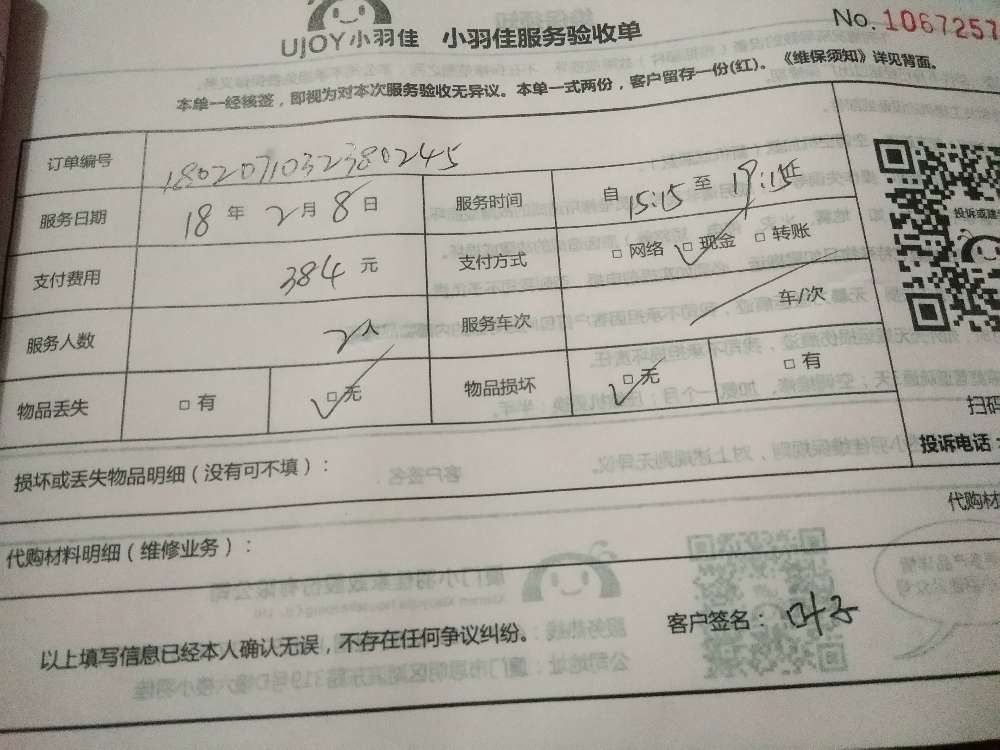 UJOY小羽佳 小羽佳服务验收单
No. 1067257
本单一经核签，即视为对本次服务验收无异议。本单一式两份，客户留存一份(红)。《维保须知》详见背面。
订单编号 1802071032380245
服务日期 18 年 2 月 8 日 服务时间 自 15:15 至 19:15
投诉或建
支付费用 384 元 支付方式 □ 网络 □ 现金 □ 转账
服务人数 2人 服务车次 车/次
物品丢失 □ 有 □ 无 物品损坏 □ 无 □ 有
扫码
投诉电话：
损坏或丢失物品明细（没有可不填）：
代购材
代购材料明细（维修业务）：
以上填写信息已经本人确认无误，不存在任何争议纠纷。
客户签名：